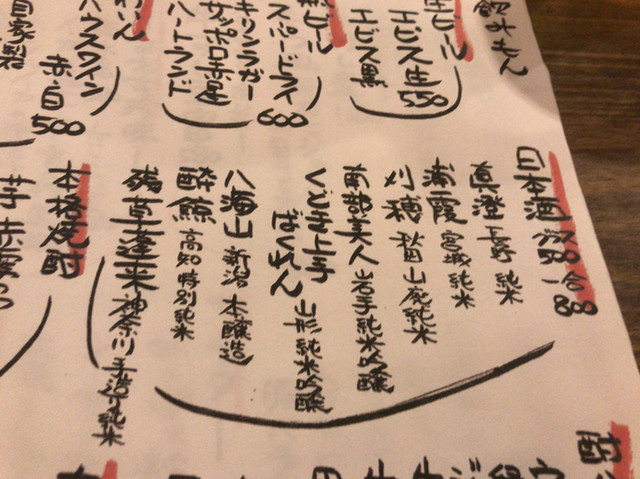 飲みもん
生ビール
エビス生 550
エビス黒
瓶ビール
スーパードライ
キリンラガー
サッポロ赤星
ハートランド
600
わいん
ハウスワイン
赤・白 500
自家製
日本酒 グラス 500 一合 880
真澄 長野 純米
浦霞 宮城 純米
刈穂 秋田 山廃純米
南部美人 岩手 純米吟醸
くどき上手
ばくれん 山形 純米吟醸
八海山 新潟 本醸造
酔鯨 高知 特別純米
残草蓬莱 神奈川 手造り純米
本格焼酎
芋 赤霧
酎